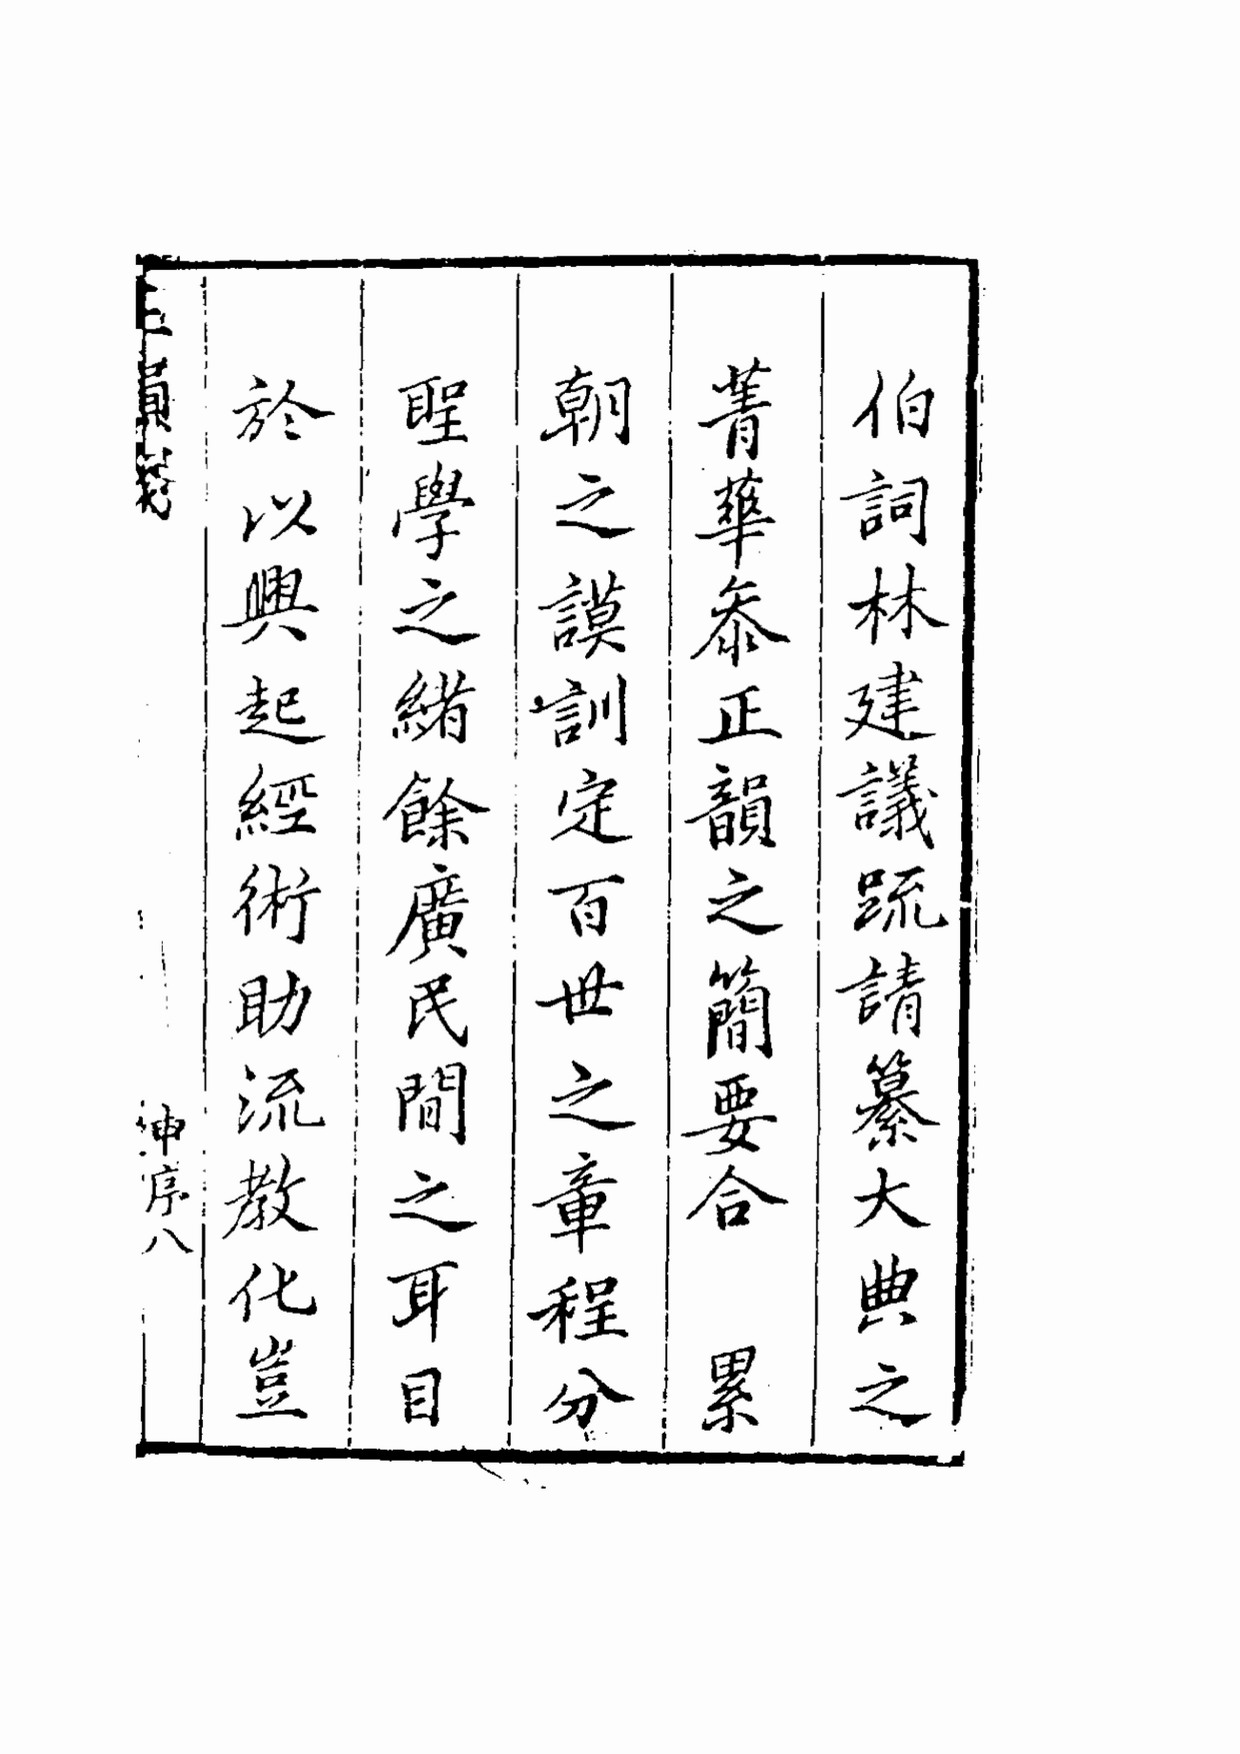 伯詞林建議疏請纂大典之
菁華叅正韻之簡要合　累
朝之謨訓定百世之章程分
聖學之緒餘廣民間之耳目
於以興起經術助流教化豈
申序八